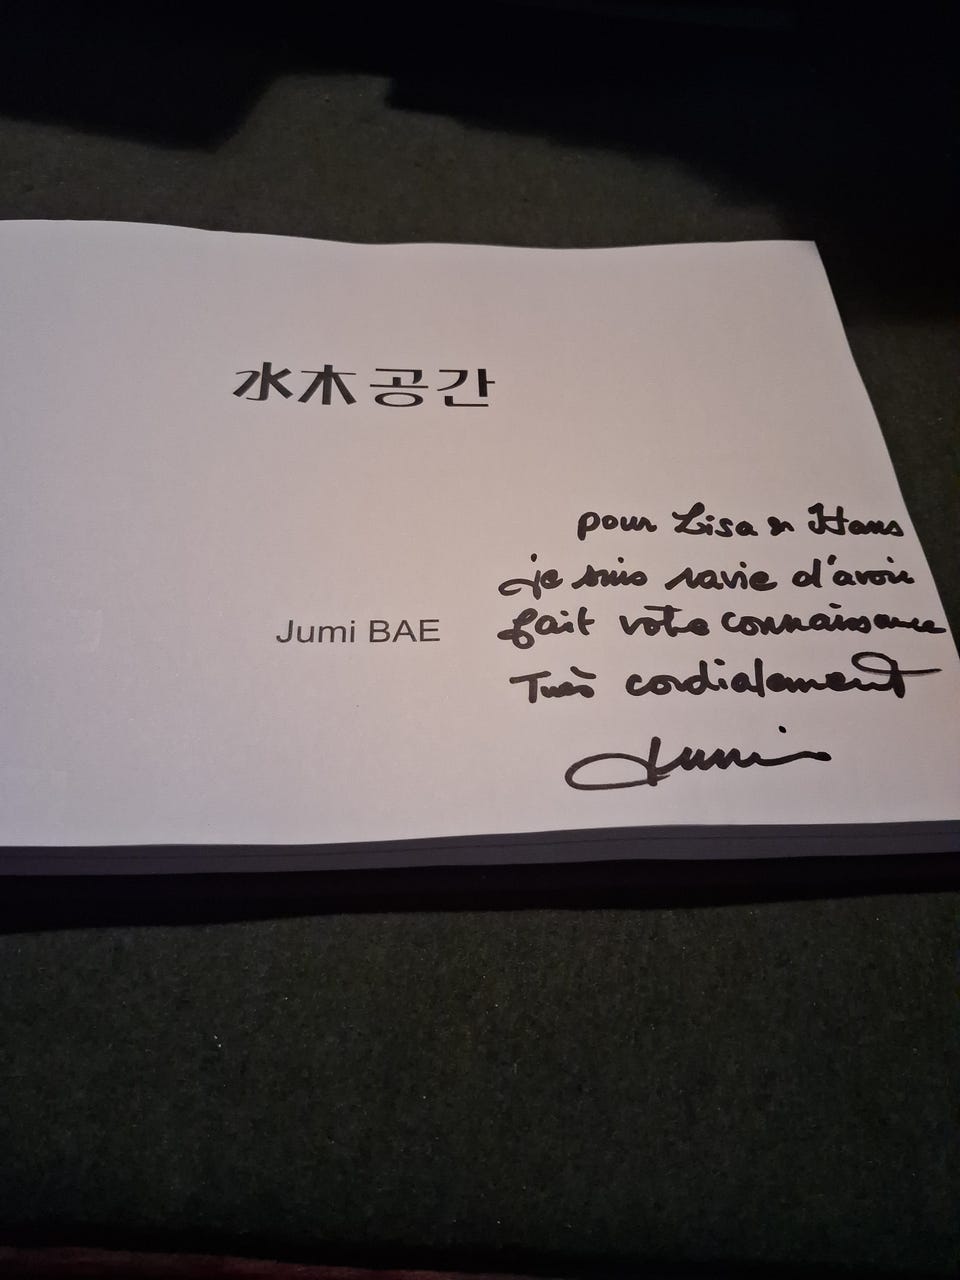 水木 공간
Jumi BAE
pour Lisa & Hans
je suis ravie d'avoir
fait votre connaissance
Très cordialement
Jumi